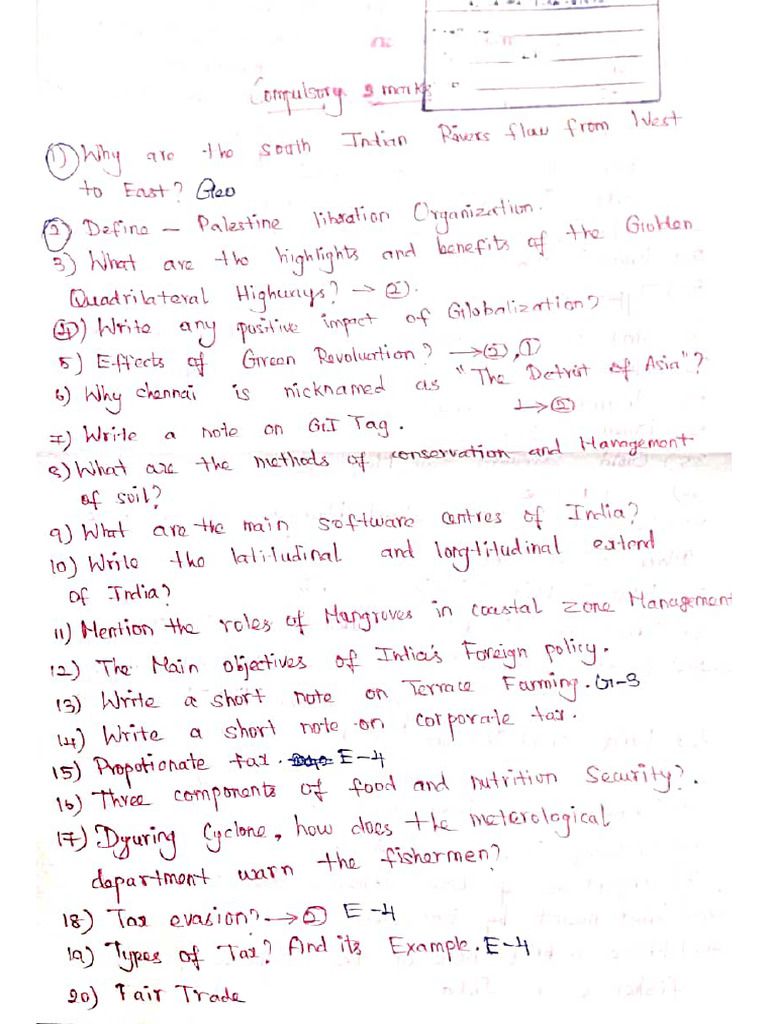 Compulsory 2 marks
1) Why are the South Indian Rivers flow from West
to East? Geo
2) Define – Palestine libration Organization.
3) What are the highlights and benefits of the Golden
Quadrilateral Highways? → ②.
4) Write any positive impact of Globalization?
5) Effects of Green Revolution? → ②, ①
6) Why chennai is nicknamed as "The Detroit of Asia"?
→ ②
7) Write a note on GI Tag.
8) What are the methods of conservation and Management
of soil?
9) What are the main software centres of India?
10) Write the latitudinal and longtitudinal extend
of India?
11) Mention the roles of Mangroves in coastal zone Management
12) The Main objectives of India's Foreign policy.
13) Write a short note on Terrace Farming. G-3
14) Write a short note on corporate tax.
15) Propotionate tax. E-4
16) Three components of food and nutrition Security?.
17) Dyuring Cyclone, how does the meterological
department warn the fishermen?
18) Tax evasion? → ② E-4
19) Types of Tax? And its Example. E-4
20) Fair Trade